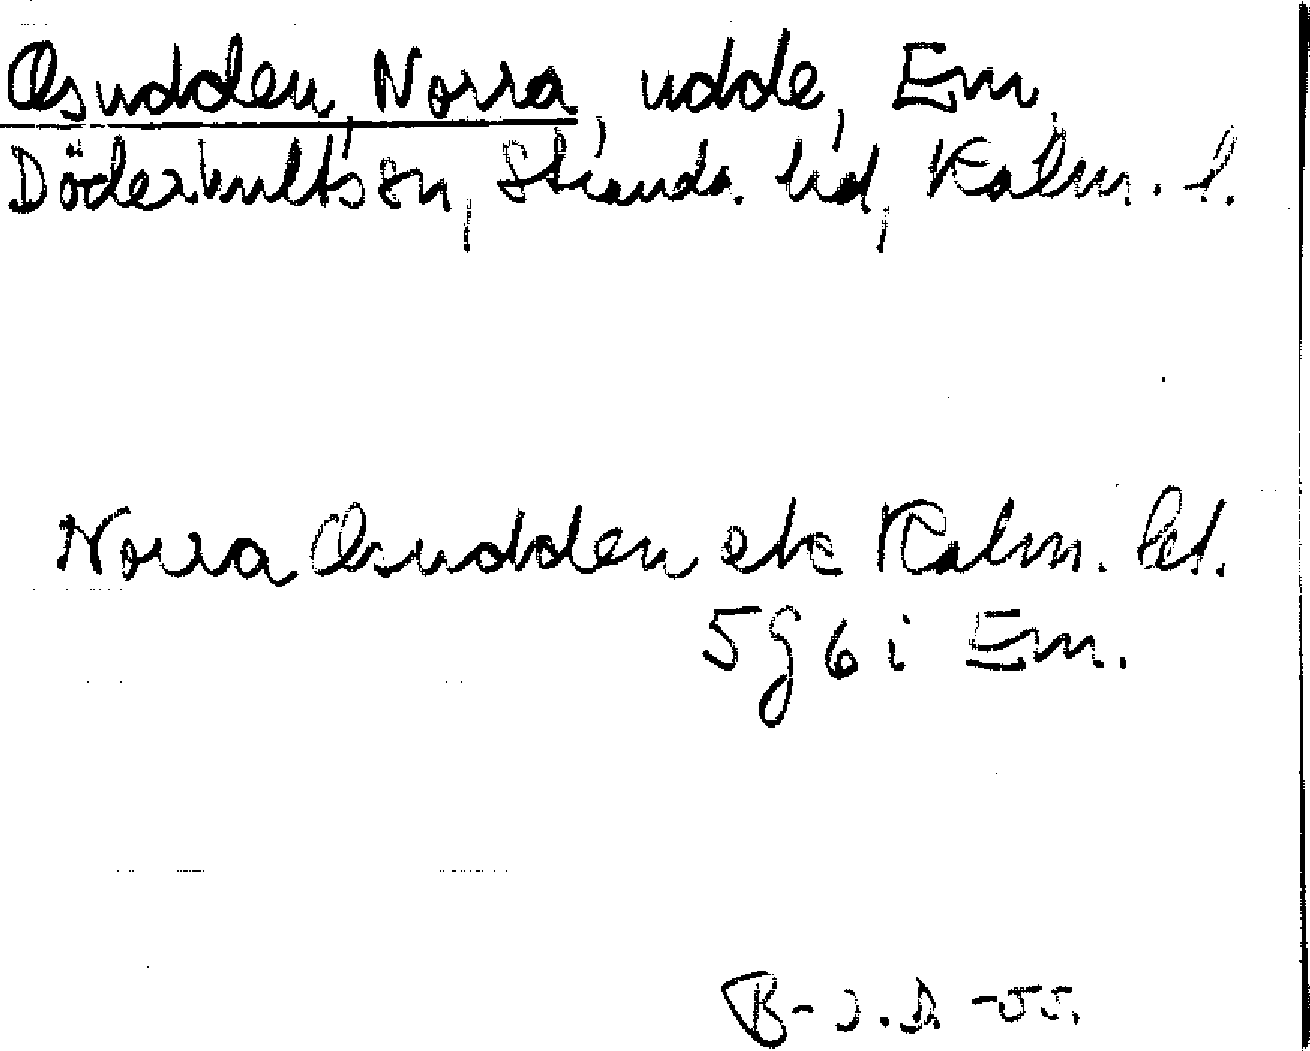 Osudden, Norra, udde, Em,
Döderhults sn, Stranda hd, Kalm. l.
Norra Osudden ek Kalm. l.
5g6 i Em.
B-J.D. -55.